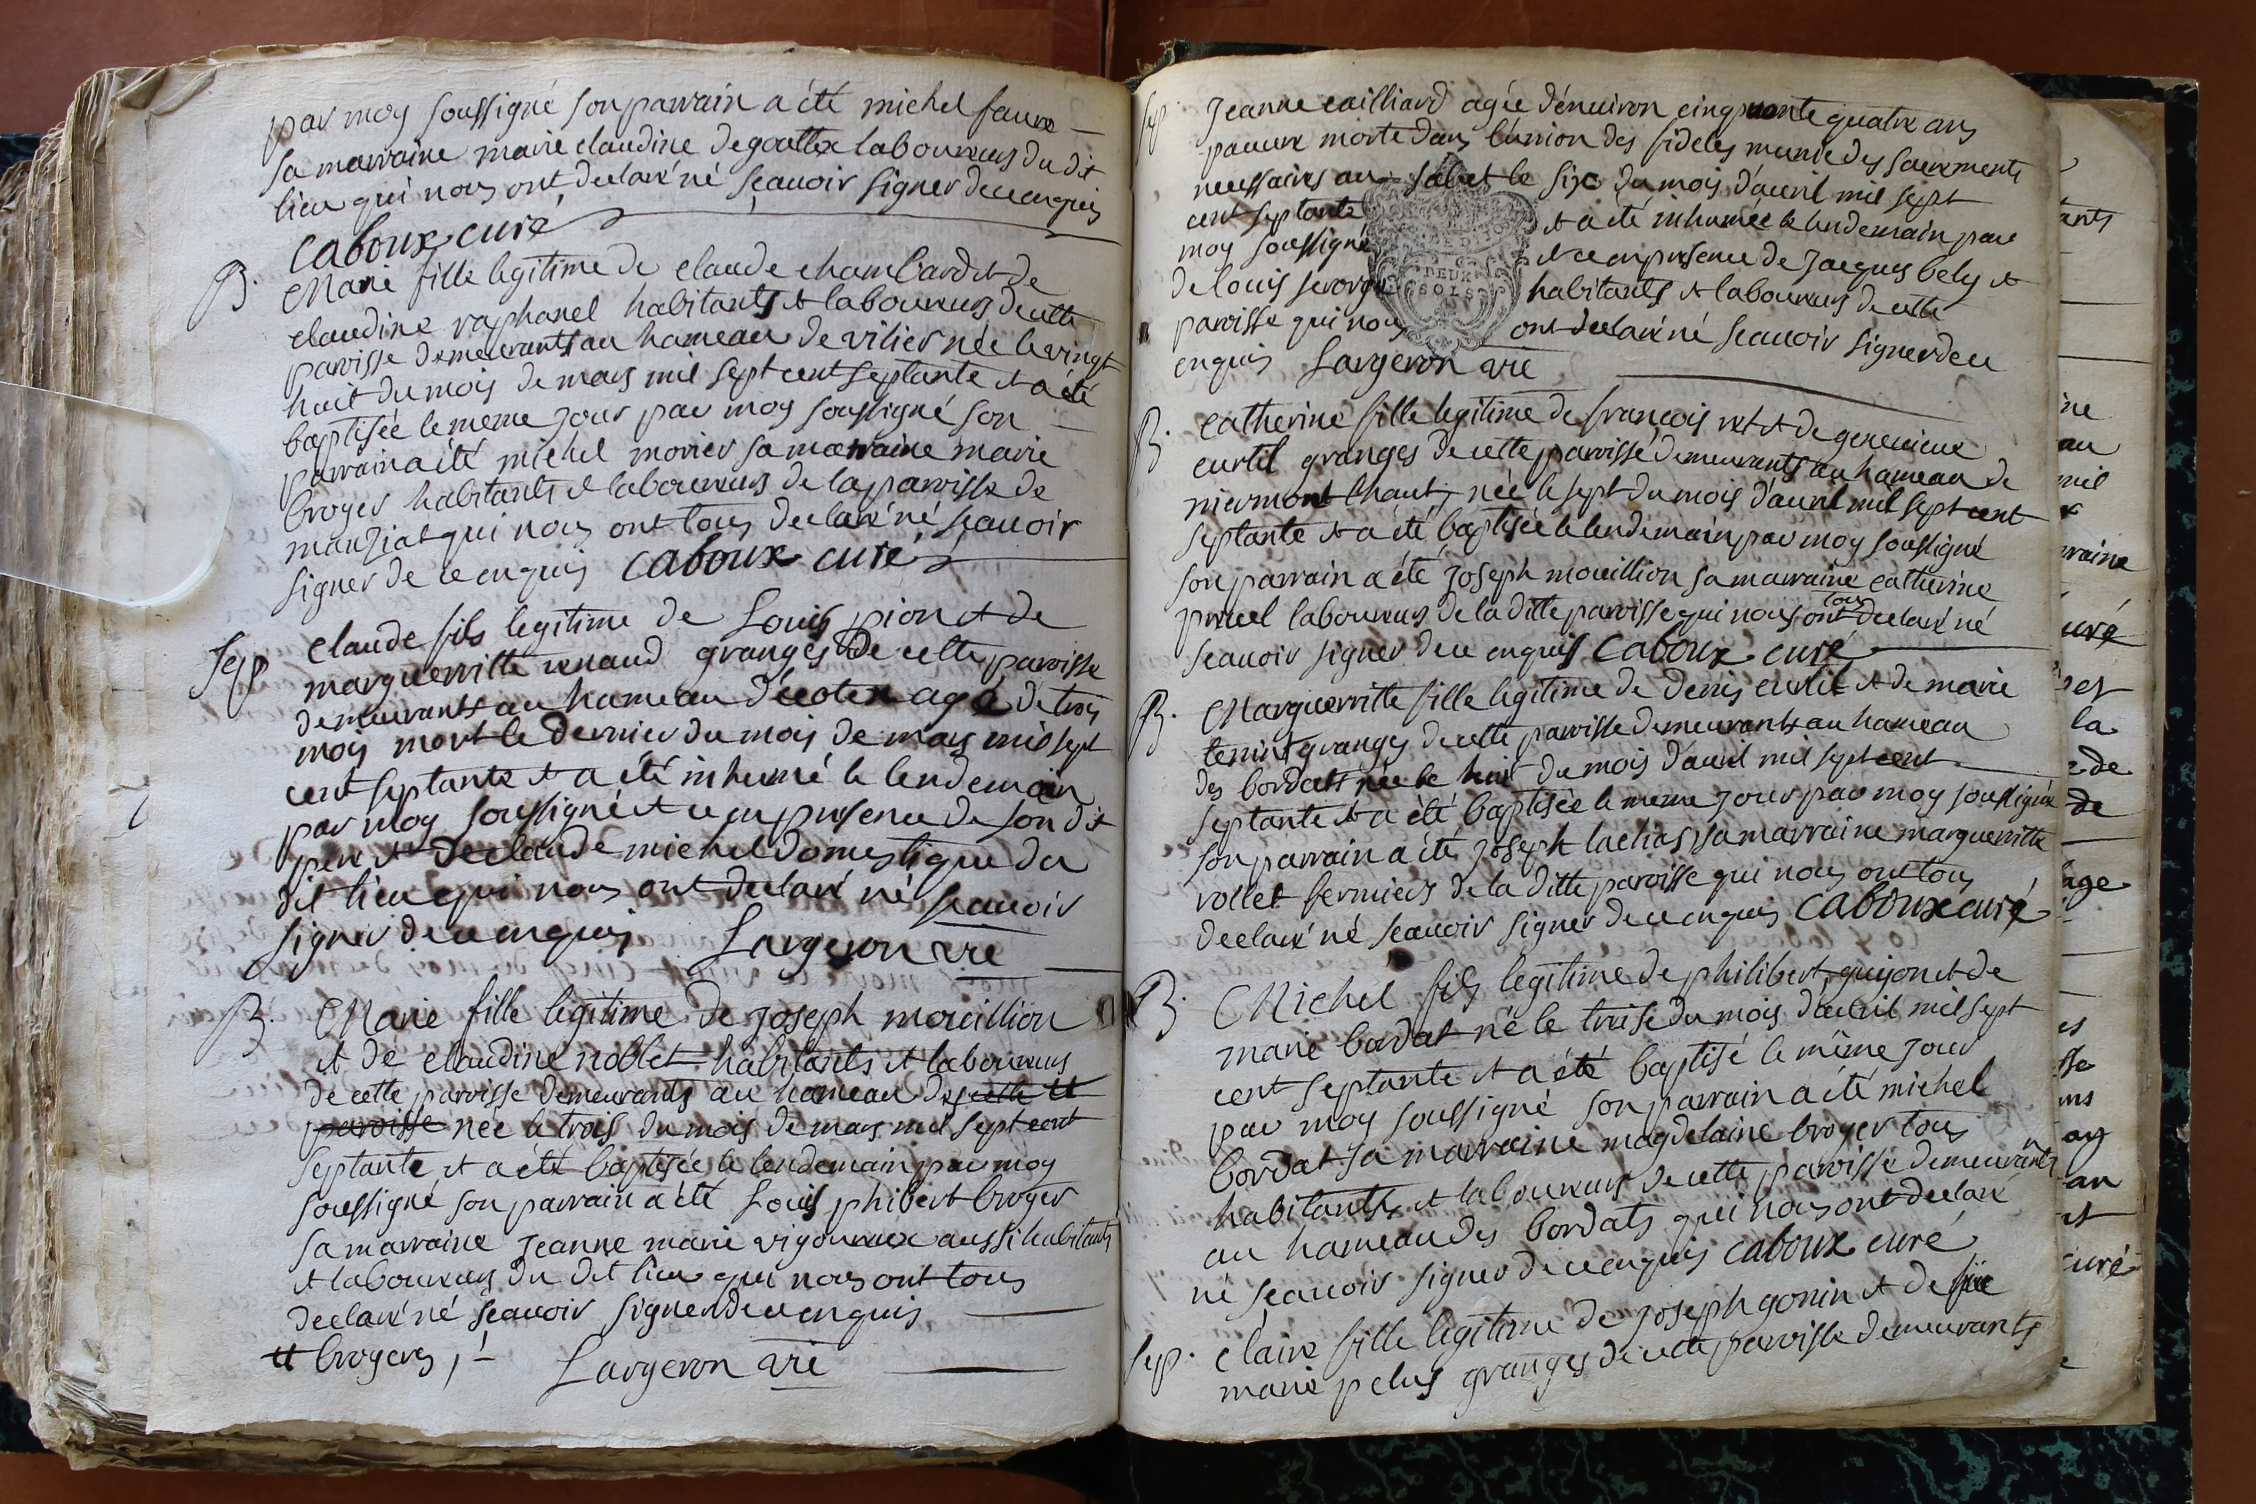 par moy soussigné son parrain a été michel faure
sa marraine marie claudine degoutte laboureurs du dit
lieu qui nous ont declaré né sçauoir signer de ce enquis
caboux curé
B. Marie fille legitime de claude chambard et de
claudine raphanel habitants et laboureurs de cette
paroisse demeurants au hameau de vilier née le vingt
huit du mois de mars mil sept cent septante et a été
baptisée le meme jour par moy soussigné son
parrain a été michel morier sa marraine marie
broyer habitants et laboureurs de la paroisse de
manziat qui nous ont tous declaré né sçauoir
signer de ce enquis caboux curé
sep claude fils legitime de Louis pion et de
marguerritte renaud grangés de cette paroisse
demeurants au hameau d'ecotex agé de trois
mois mort le dernier du mois de mars mil sept
cent septante et a été inhumé le lendemain
par moy soussigné et ce en presence de son dit
pere et de claude michel domestique du
dit lieu qui nous ont declaré né scauoir
signer de ce enquis Largeron vie
B. Marie fille legitime de joseph mouillion
et de claudine noblet habitants et laboureurs
de cette paroisse demeurants au hameau des cette tt
paroisse née le trois du mois de mars mil sept cent
septante et a été baptisée le lendemain par moy
soussigné son parrain a été Louis phibert broyer
sa marraine jeanne marie vigoureux aussi habitants
et laboureurs du dit lieu qui nous ont tous
declaré né sçauoir signer de ce enquis
tt broyers,
Largeron vie
sep. jeanne cailliard agée d'enuiron cinquante quatre ans
pauure morte dans l'union des fideles munie des sacrements
necessaires au salut le six du mois d'auril mil sept
cent septante et a été inhumée le lendemain par
moy soussigné et ce en presence de jacques bely et
de louis habitants et laboureurs de cette
DEUX
SOLS
paroisse qui nous ont declaré né scauoir signer de ce
enquis Largeron vie
B. catherine fille legitime de françois vet et de geneuieue
curtil grangés de cette paroisse demeurants au hameau de
niermont haut, née le sept du mois d'auril mil sept cent
septante et a été baptisée le lendemain par moy soussigné
son parrain a été joseph mouillion sa marraine catherine
tous
pruel laboureurs de la ditte paroisse qui nous ont declaré né
scauoir signer de ce enquis caboux curé
B. Marguerritte fille legitime de denis curtil et de marie
tenint grangés de cette paroisse demeurants au hameau
des bordats née le huit du mois d'auril mil sept cent
septante et a été baptisée le meme jour par moy soussigné
son parrain a été joseph lachas sa marraine marguerritte
vollet fermiers de la ditte paroisse qui nous ont tous
declaré né scauoir signer de ce enquis caboux curé
B. Michel fils legitime de philibert guyon et de
marie bordat né le treise du mois d'auril mil sept
cent septante et a été baptisé le même jour
par moy soussigné son parrain a été michel
bordat sa marraine magdelaine broyer tous
habitants et laboureurs de cette paroisse demeurants
au hameau des bordats qui nous ont declaré
né scauoir signer de ce enquis caboux curé
sep. claire fille legitime de joseph gonin et de
marie pelus grangés de cette paroisse demeurants